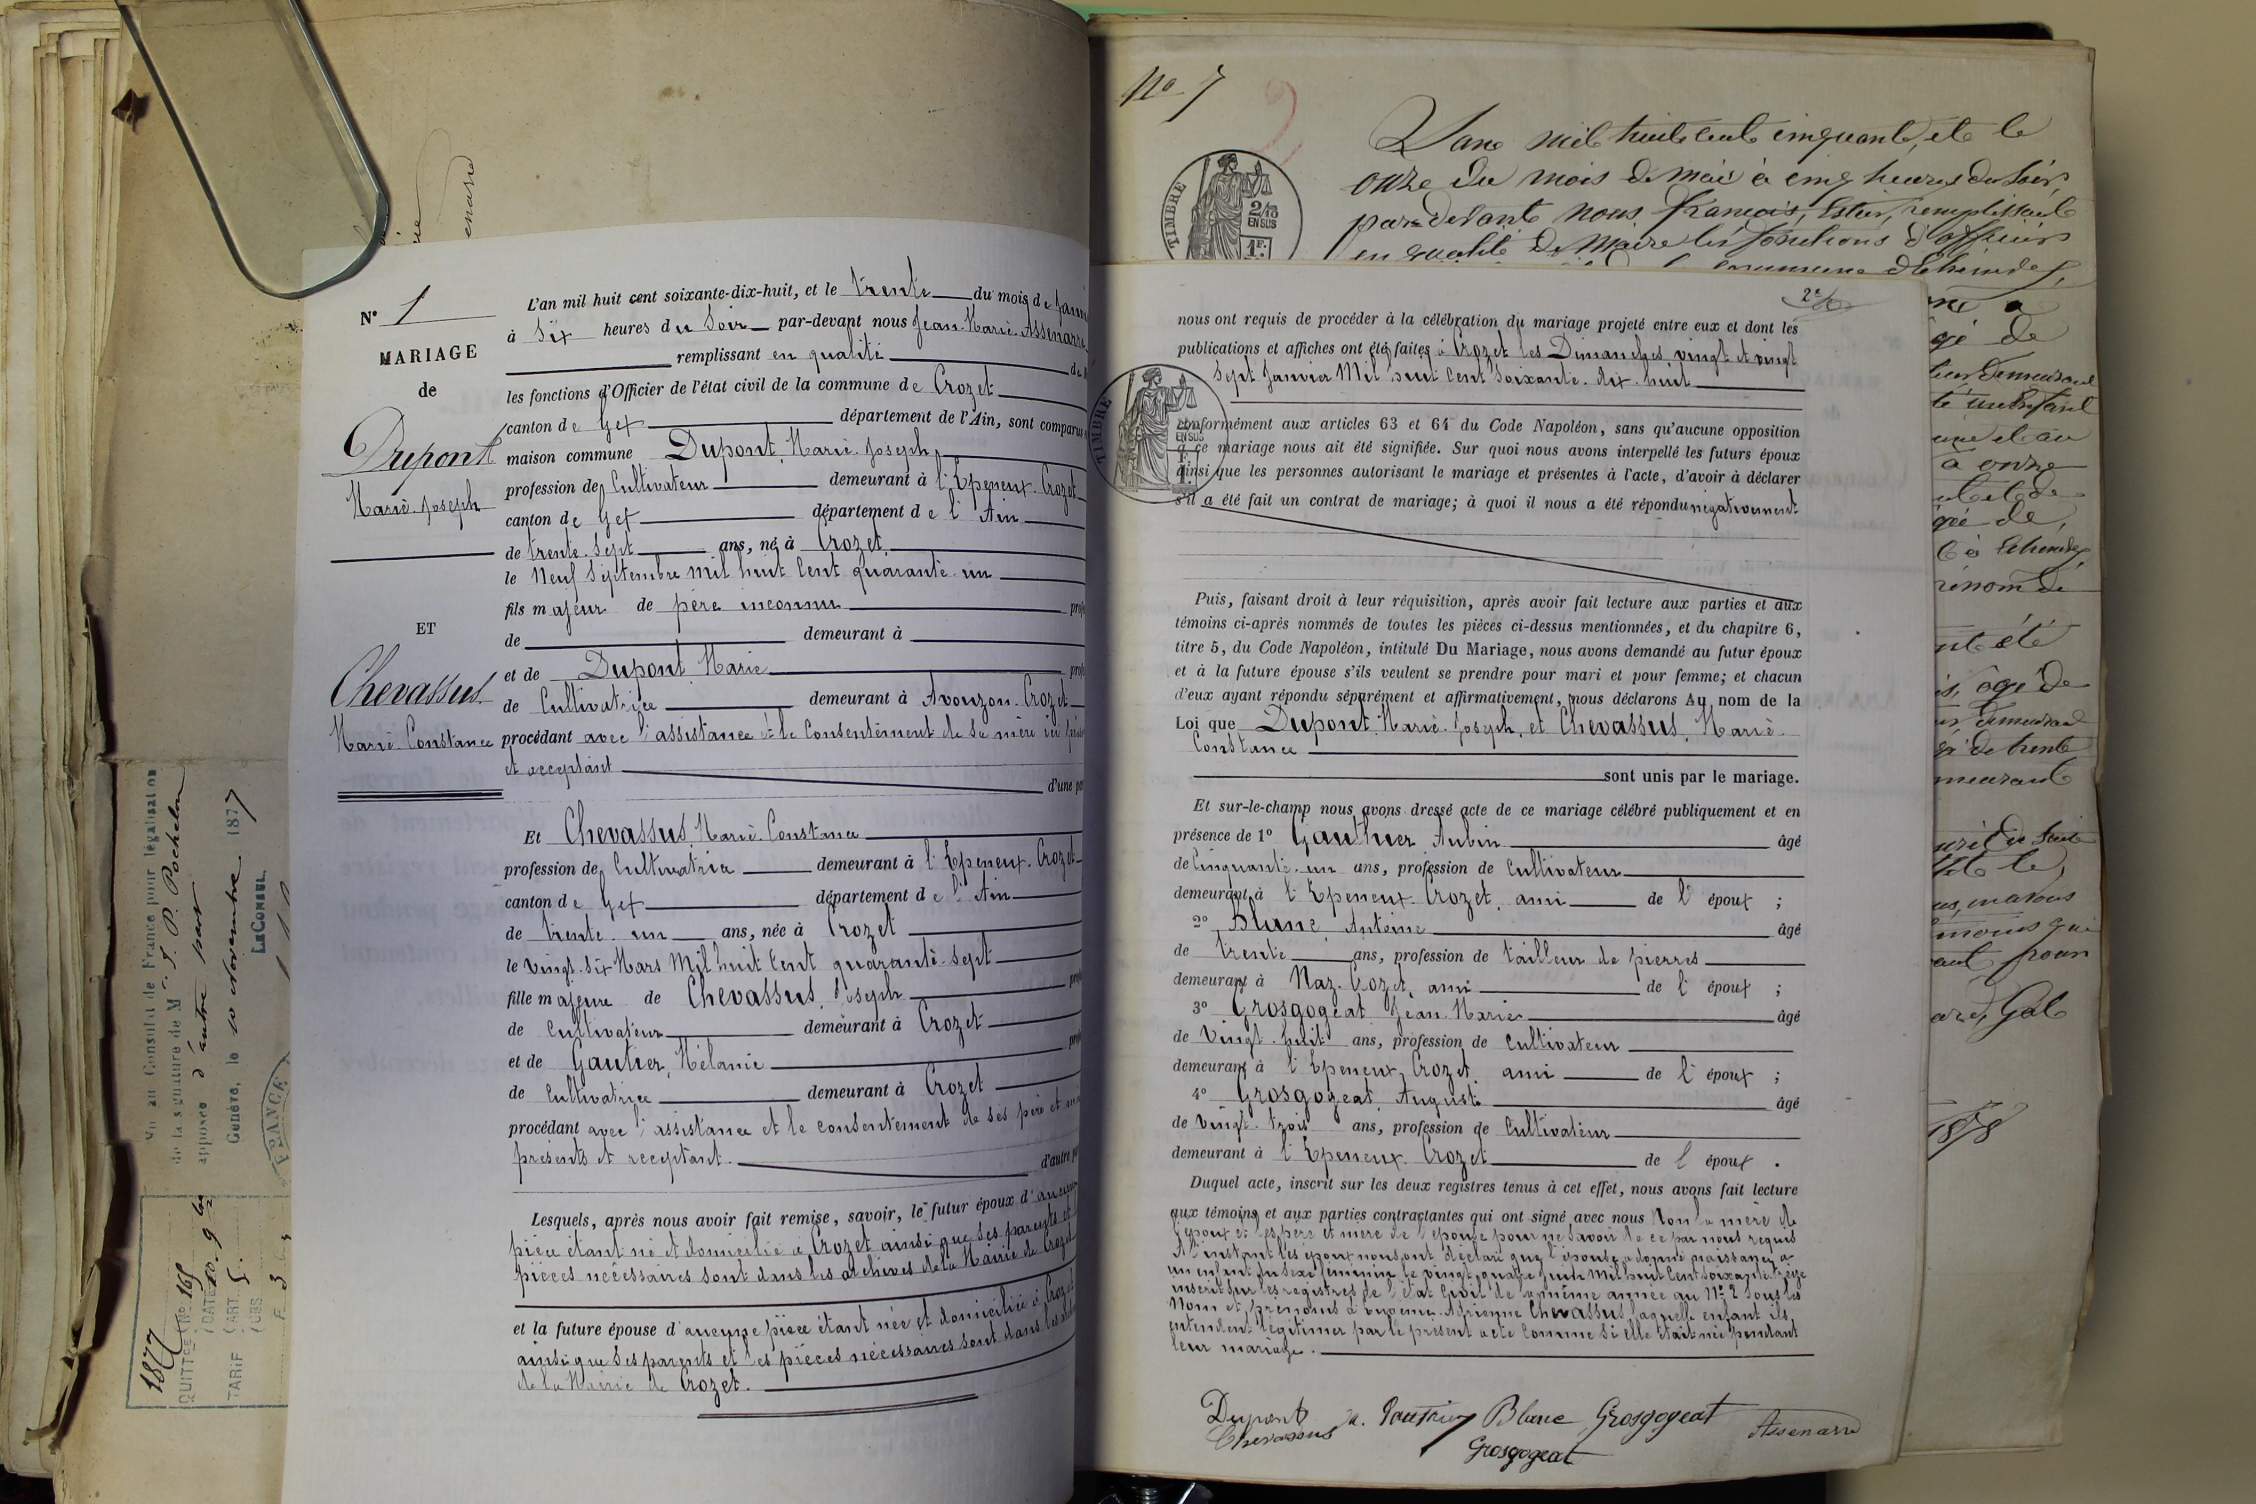 N° 1
MARIAGE
de
Dupont
Marie Joseph
ET
Chevassus
Marie Constance
L'an mil huit cent soixante-dix-huit, et le trente du mois de
à Six heures du Soir par-devant nous Jean-Marie Assenarre
remplissant en qualité de
les fonctions d'Officier de l'état civil de la commune de Crozet
canton de Gex département de l'Ain, sont comparus
maison commune Dupont, Marie Joseph,
profession de Cultivateur demeurant à l'Epeneux-Crozet
canton de Gex département de l'Ain
de trente-sept ans, né à Crozet
le Neuf Septembre Mil huit Cent quarante-un
fils majeur de père inconnu
de demeurant à
et de Dupont Marie
de Cultivatrice demeurant à Avouzon-Crozet
procédant avec l'assistance et le Consentement de sa mère ici
et acceptant
d'une
Et Chevassus, Marie Constance
profession de Cultivatrice demeurant à l'Epeneux-Crozet
canton de Gex département de l'Ain
de trente-un ans, née à Crozet
le Vingt-Six Mars Mil huit Cent quarante-sept
fille majeure de Chevassus, Joseph
de Cultivateur demeurant à Crozet
et de Gautier, Mélanie
de Cultivatrice demeurant à Crozet
procédant avec l'assistance et le consentement de ses père et
présents et acceptant
d'autre
Lesquels, après nous avoir fait remise, savoir, le futur époux d'aucune
pièce étant né et domicilié à Crozet ainsi que ses parents et
pièces nécessaires sont dans les archives de la Mairie de Crozet
et la future épouse d'aucune pièce étant née et domiciliée à Crozet
ainsi que ses parents et les pièces nécessaires sont dans les
de la Mairie de Crozet.
Vu au Consulat de France pour légalisation
de la signature de M. J. P. Pochelon
apposée d'autre part
Genève, le 10 Novembre 1877
LE CONSUL
FRANCE
1877
QUITTCE N° 165
DATE
TARIF ART. 5.
N° 7
2
TIMBRE
2/10
EN SUS
1F.
L'an mil huit cent cinquante, et le
onze du mois de mai à cinq heures du soir,
par devant nous françois, remplissant
en qualité de Maire les fonctions d'officier
2e
nous ont requis de procéder à la célébration du mariage projeté entre eux et dont les
publications et affiches ont été faites à Crozet les Dimanches vingt et vingt
Sept Janvier Mil huit Cent Soixante-dix-huit
TIMBRE
conformément aux articles 63 et 64 du Code Napoléon, sans qu'aucune opposition
à ce mariage nous ait été signifiée. Sur quoi nous avons interpellé les futurs époux
ainsi que les personnes autorisant le mariage et présentes à l'acte, d'avoir à déclarer
s'il a été fait un contrat de mariage; à quoi il nous a été répondu négativement
Puis, faisant droit à leur réquisition, après avoir fait lecture aux parties et aux
témoins ci-après nommés de toutes les pièces ci-dessus mentionnées, et du chapitre 6,
titre 5, du Code Napoléon, intitulé Du Mariage, nous avons demandé au futur époux
et à la future épouse s'ils veulent se prendre pour mari et pour femme; et chacun
d'eux ayant répondu séparément et affirmativement, nous déclarons Au nom de la
Loi que Dupont, Marie Joseph, et Chevassus, Marie
Constance
sont unis par le mariage.
Et sur-le-champ nous avons dressé acte de ce mariage célébré publiquement et en
présence de 1° Gauthier Aubin âgé
de Cinquante-un ans, profession de Cultivateur
demeurant à l'Epeneux-Crozet, ami de l'époux ;
2° Blanc, Antoine âgé
de trente ans, profession de tailleur de pierres
demeurant à Naz-Crozet, ami de l'époux ;
3° Grosgogeat Jean Marie âgé
de Vingt-huit ans, profession de Cultivateur
demeurant à l'Epeneux, Crozet, ami de l'époux ;
4° Grosgogeat, Auguste âgé
de Vingt-trois ans, profession de Cultivateur
demeurant à l'Epeneux-Crozet de l'époux .
Duquel acte, inscrit sur les deux registres tenus à cet effet, nous avons fait lecture
aux témoins et aux parties contractantes qui ont signé avec nous Non la mère de
l'époux et les père et mère de l'épouse pour ne savoir de ce par nous requis
A l'instant les époux nous ont déclaré que l'épouse a donné naissance à
un enfant du sexe féminin le vingt-quatre Mil huit Cent soixante-treize
inscrit sur les registres de l'état civil de la même année au N° 2 sous les
Nom et prénoms d'Eugénie Adrienne Chevassus laquelle enfant ils
entendent légitimer par le présent acte comme si elle était née pendant
leur mariage.
Dupont a. Gauthier Blanc Grosgogeat Assenarre
Chevassus
Grosgogeat
1878